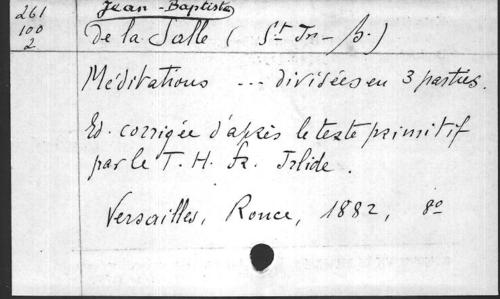 261
100
2
Jean-Baptiste
De la Salle ( St Jn-B.)
Méditations ... divisées en 3 parties.
Ed. corrigée d'après le texte primitif
par le T. H. fr. Irlide.
Versailles, Ronce, 1882, 8o